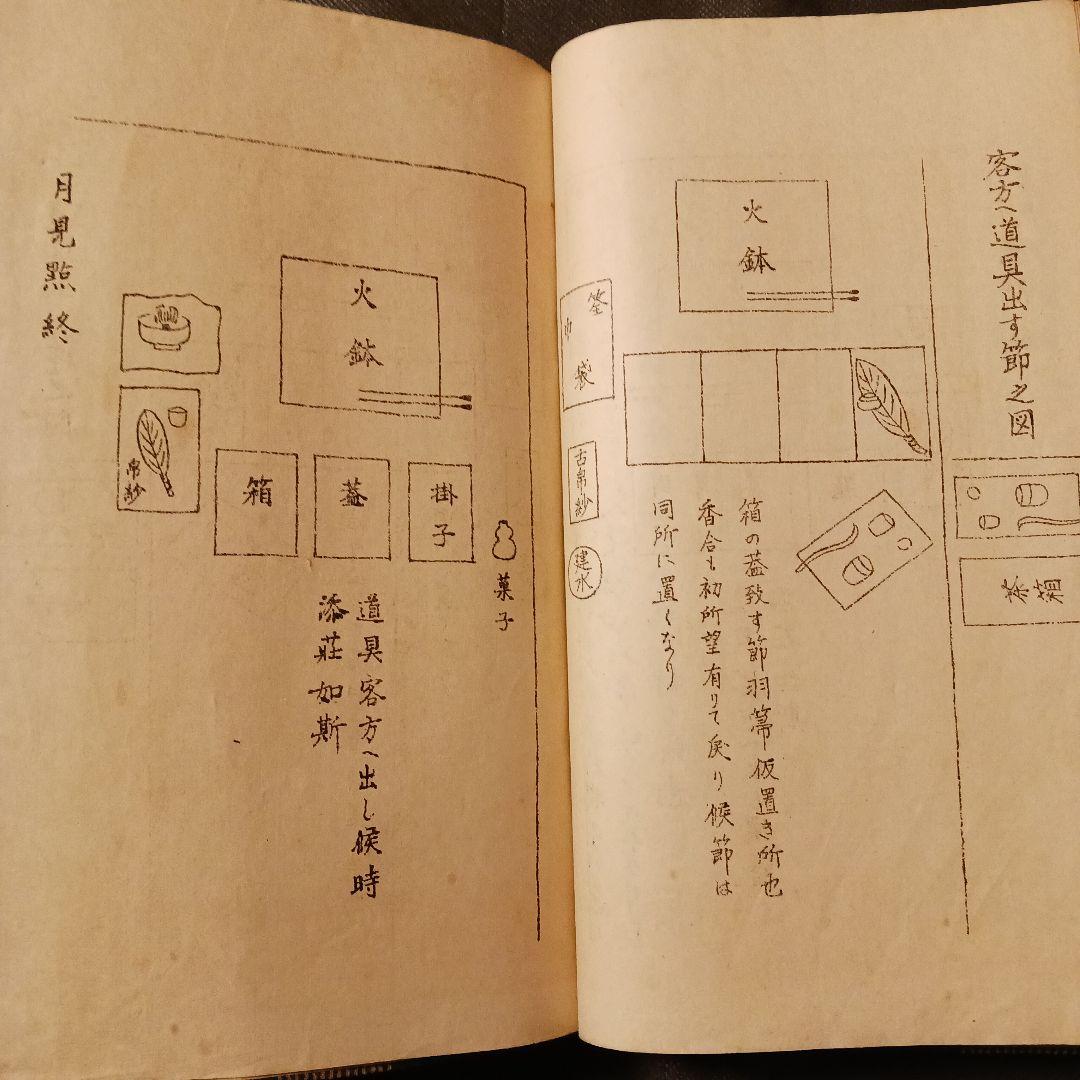 客方へ道具出す節之図
火鉢
茶箱
箱の蓋致す節羽箒仮置き所也
香合も初所望有りて戻り候節は
同所に置くなり
筌巾袋
古帛紗
建水
火鉢
掛子
蓋
箱
菓子
道具客方へ出し候時
添荘如斯
帛紗
月見點終